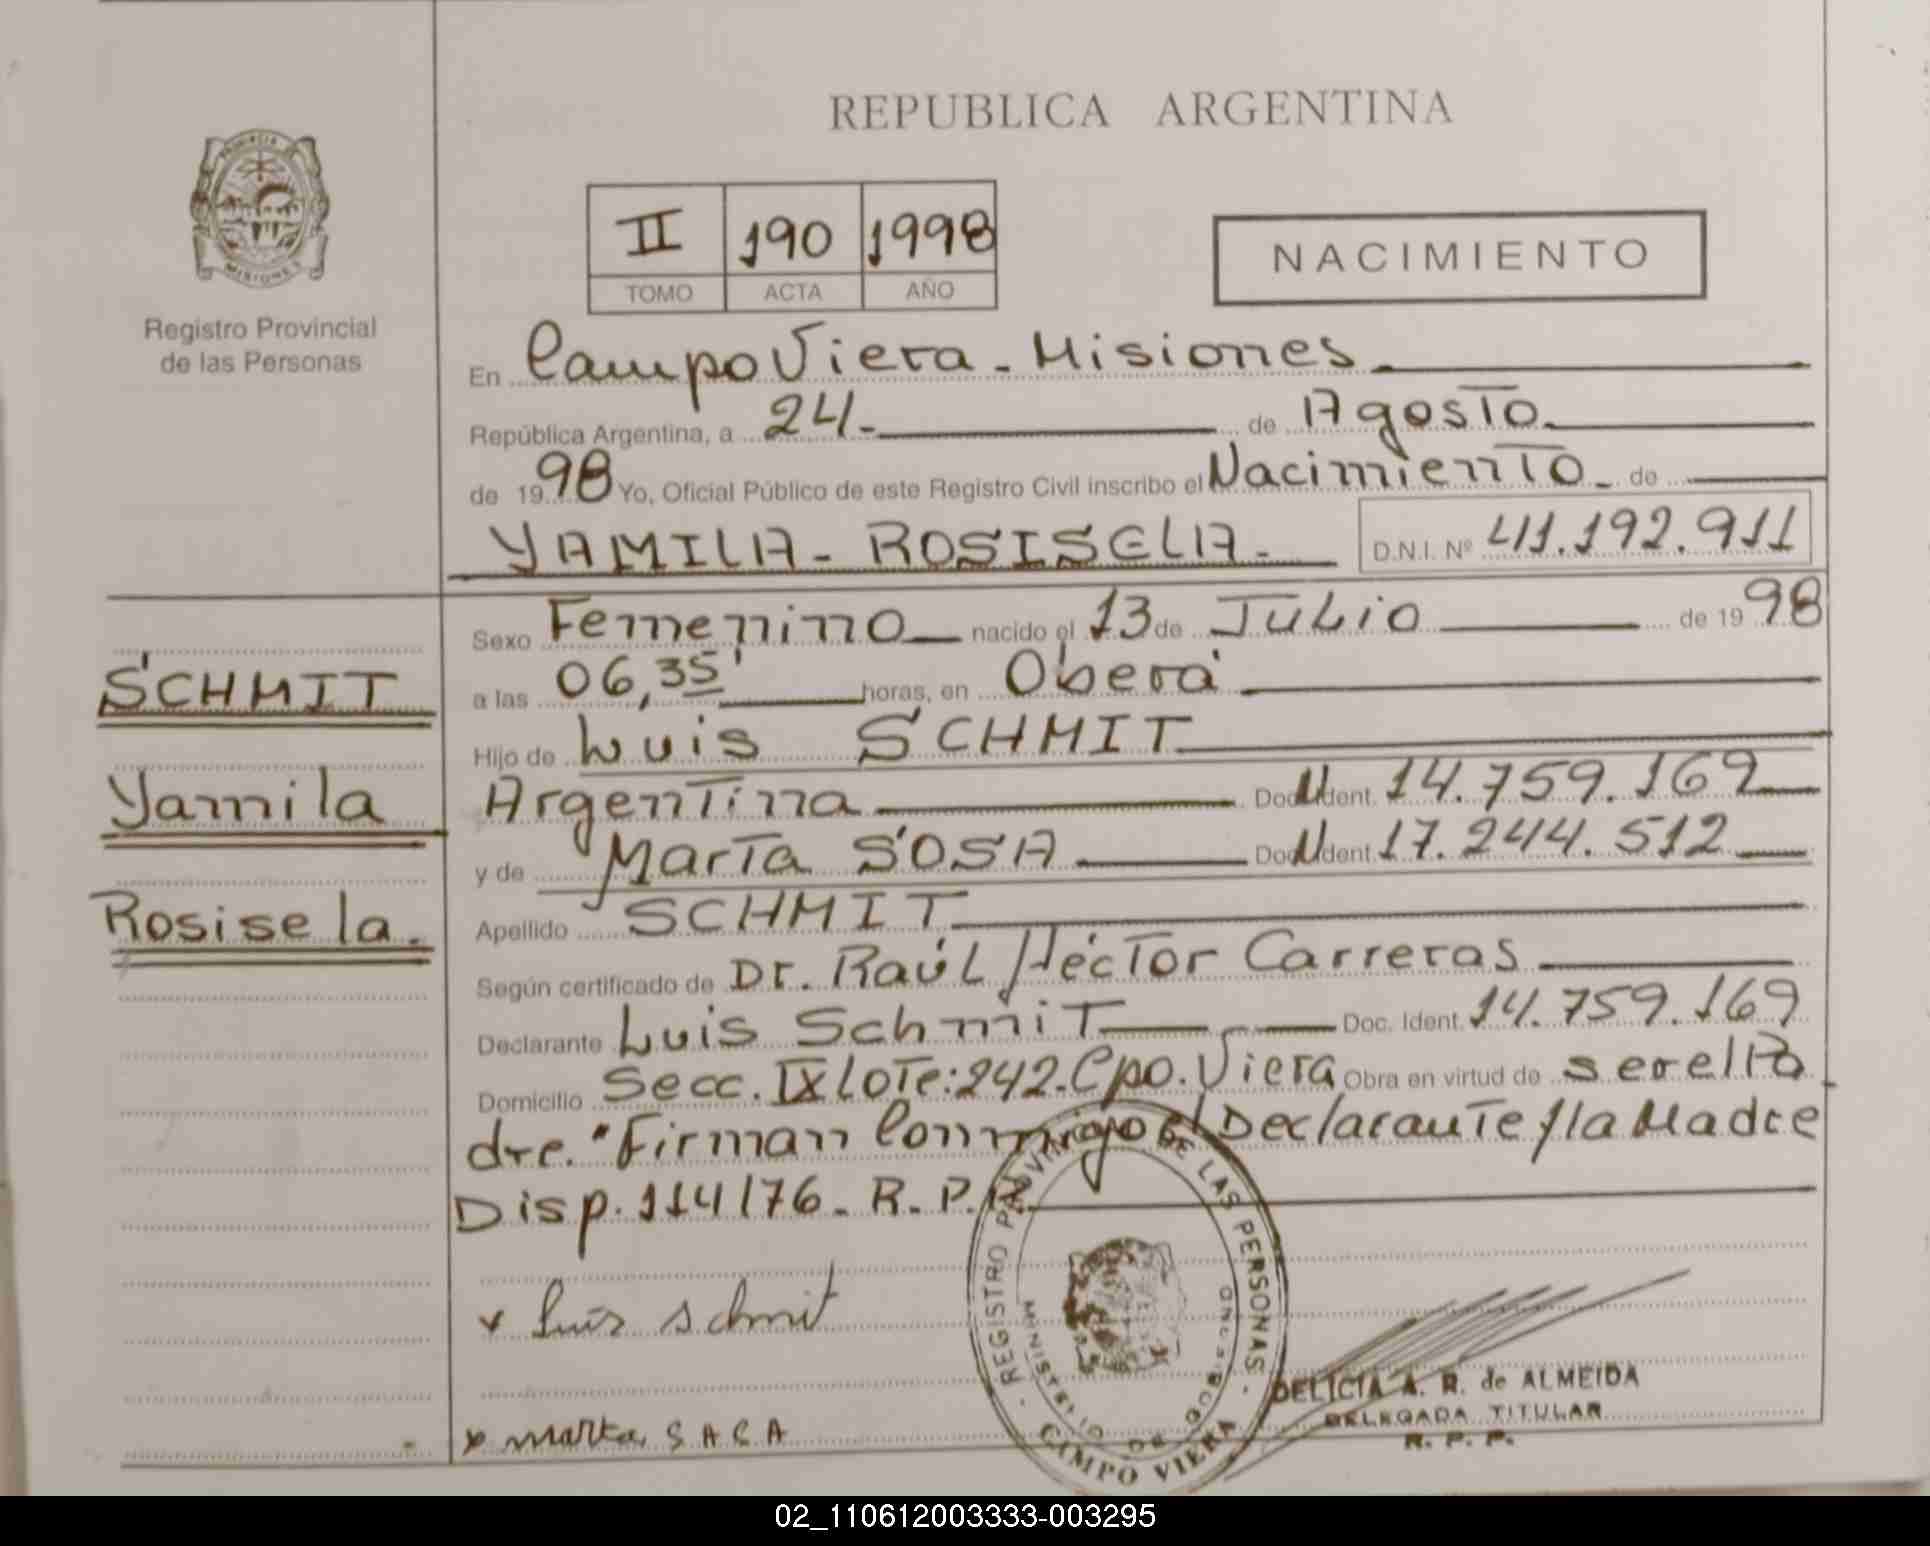 REPUBLICA ARGENTINA
PROVINCIA DE
MISIONES
Registro Provincial
de las Personas
II 190 1998
TOMO ACTA AÑO
NACIMIENTO
En Campo Viera - Misiones
República Argentina, a 24 - de Agosto
de 1998 Yo, Oficial Público de este Registro Civil inscribo el Nacimiento - de
YAMILA - ROSISELA - D.N.I. Nº 41.192.911
SCHMIT
Yamila
Rosisela.
Sexo Femenino nacido el 13 de Julio de 1998
a las 06,35' horas, en Oberá
Hijo de Luis SCHMIT
Argentina Doc. Ident. 14.759.169
y de Marta SOSA Doc. Ident. 17.244.512
Apellido SCHMIT
Según certificado de Dr. Raúl Héctor Carreras
Declarante Luis Schmit Doc. Ident. 14.759.169
Domicilio Secc. IX Lote: 242. Cpo. Viera Obra en virtud de ser el Pa
dre. "Firman Conmigo el Declarante y la Madre
Disp. 114/76 - R. P. P.
x Luis Schmit
x Marta
REGISTRO PROVINCIAL DE LAS PERSONAS
CAMPO VIERA
DELICIA A. R. de ALMEIDA
DELEGADA TITULAR
R. P. P.
02_110612003333-003295